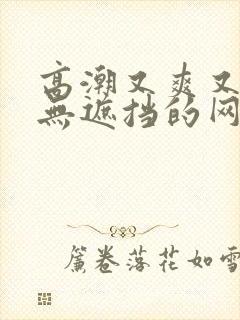 高潮又爽又
無遮挡的网
簾卷落花如雪